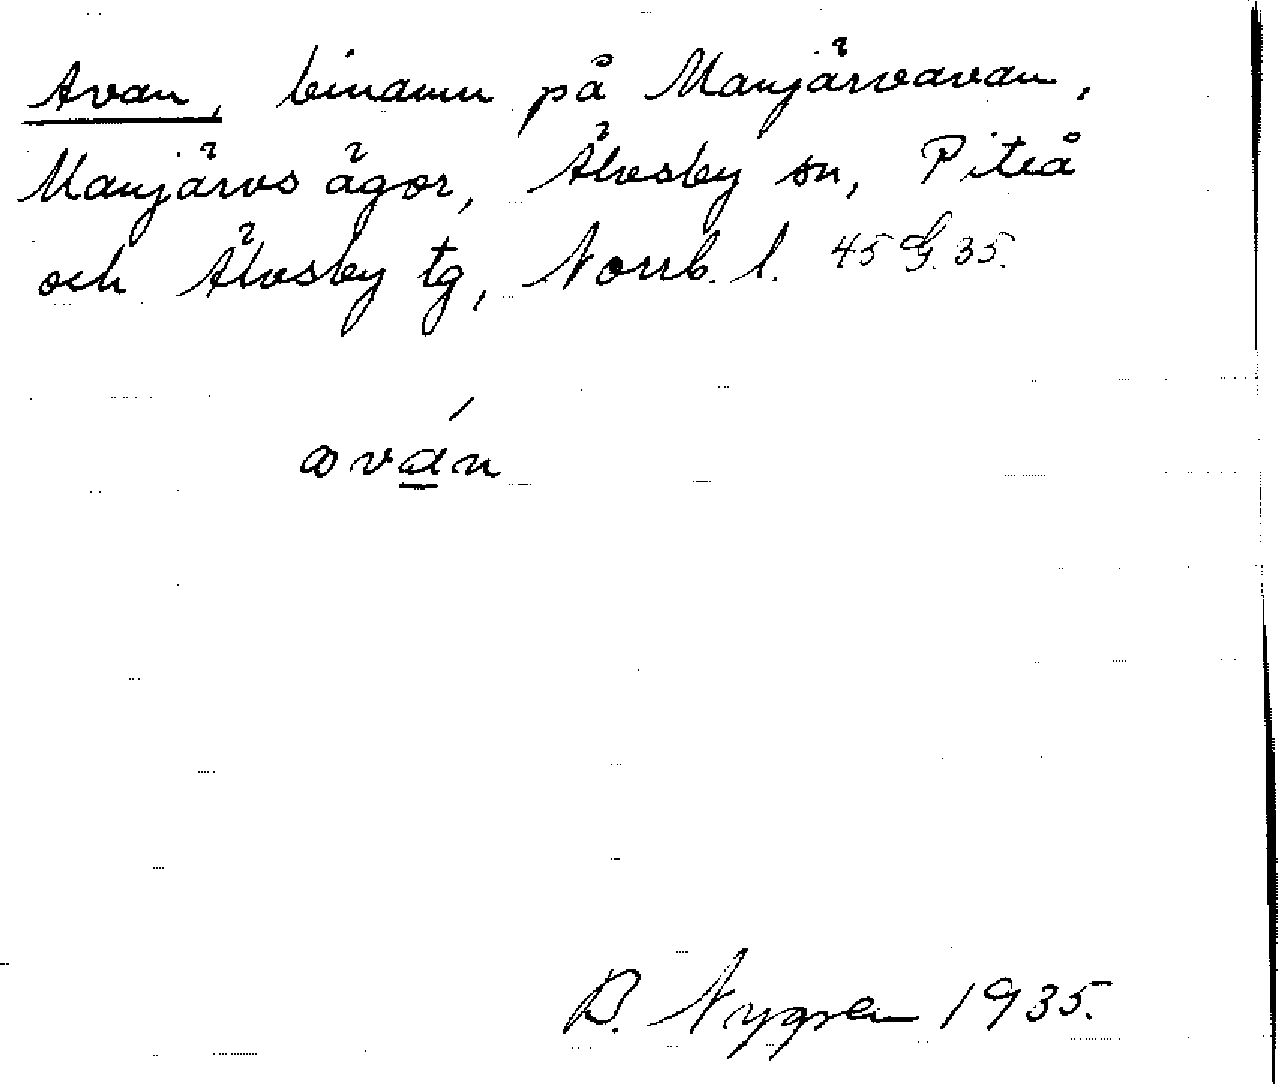 Avan, binamn på Manjärvavan,
Manjärvs ägor, Älvsby sn, Piteå
och Älvsby tg, Norrb. l. 45 G. 35.
avań
B. Nygren 1935.